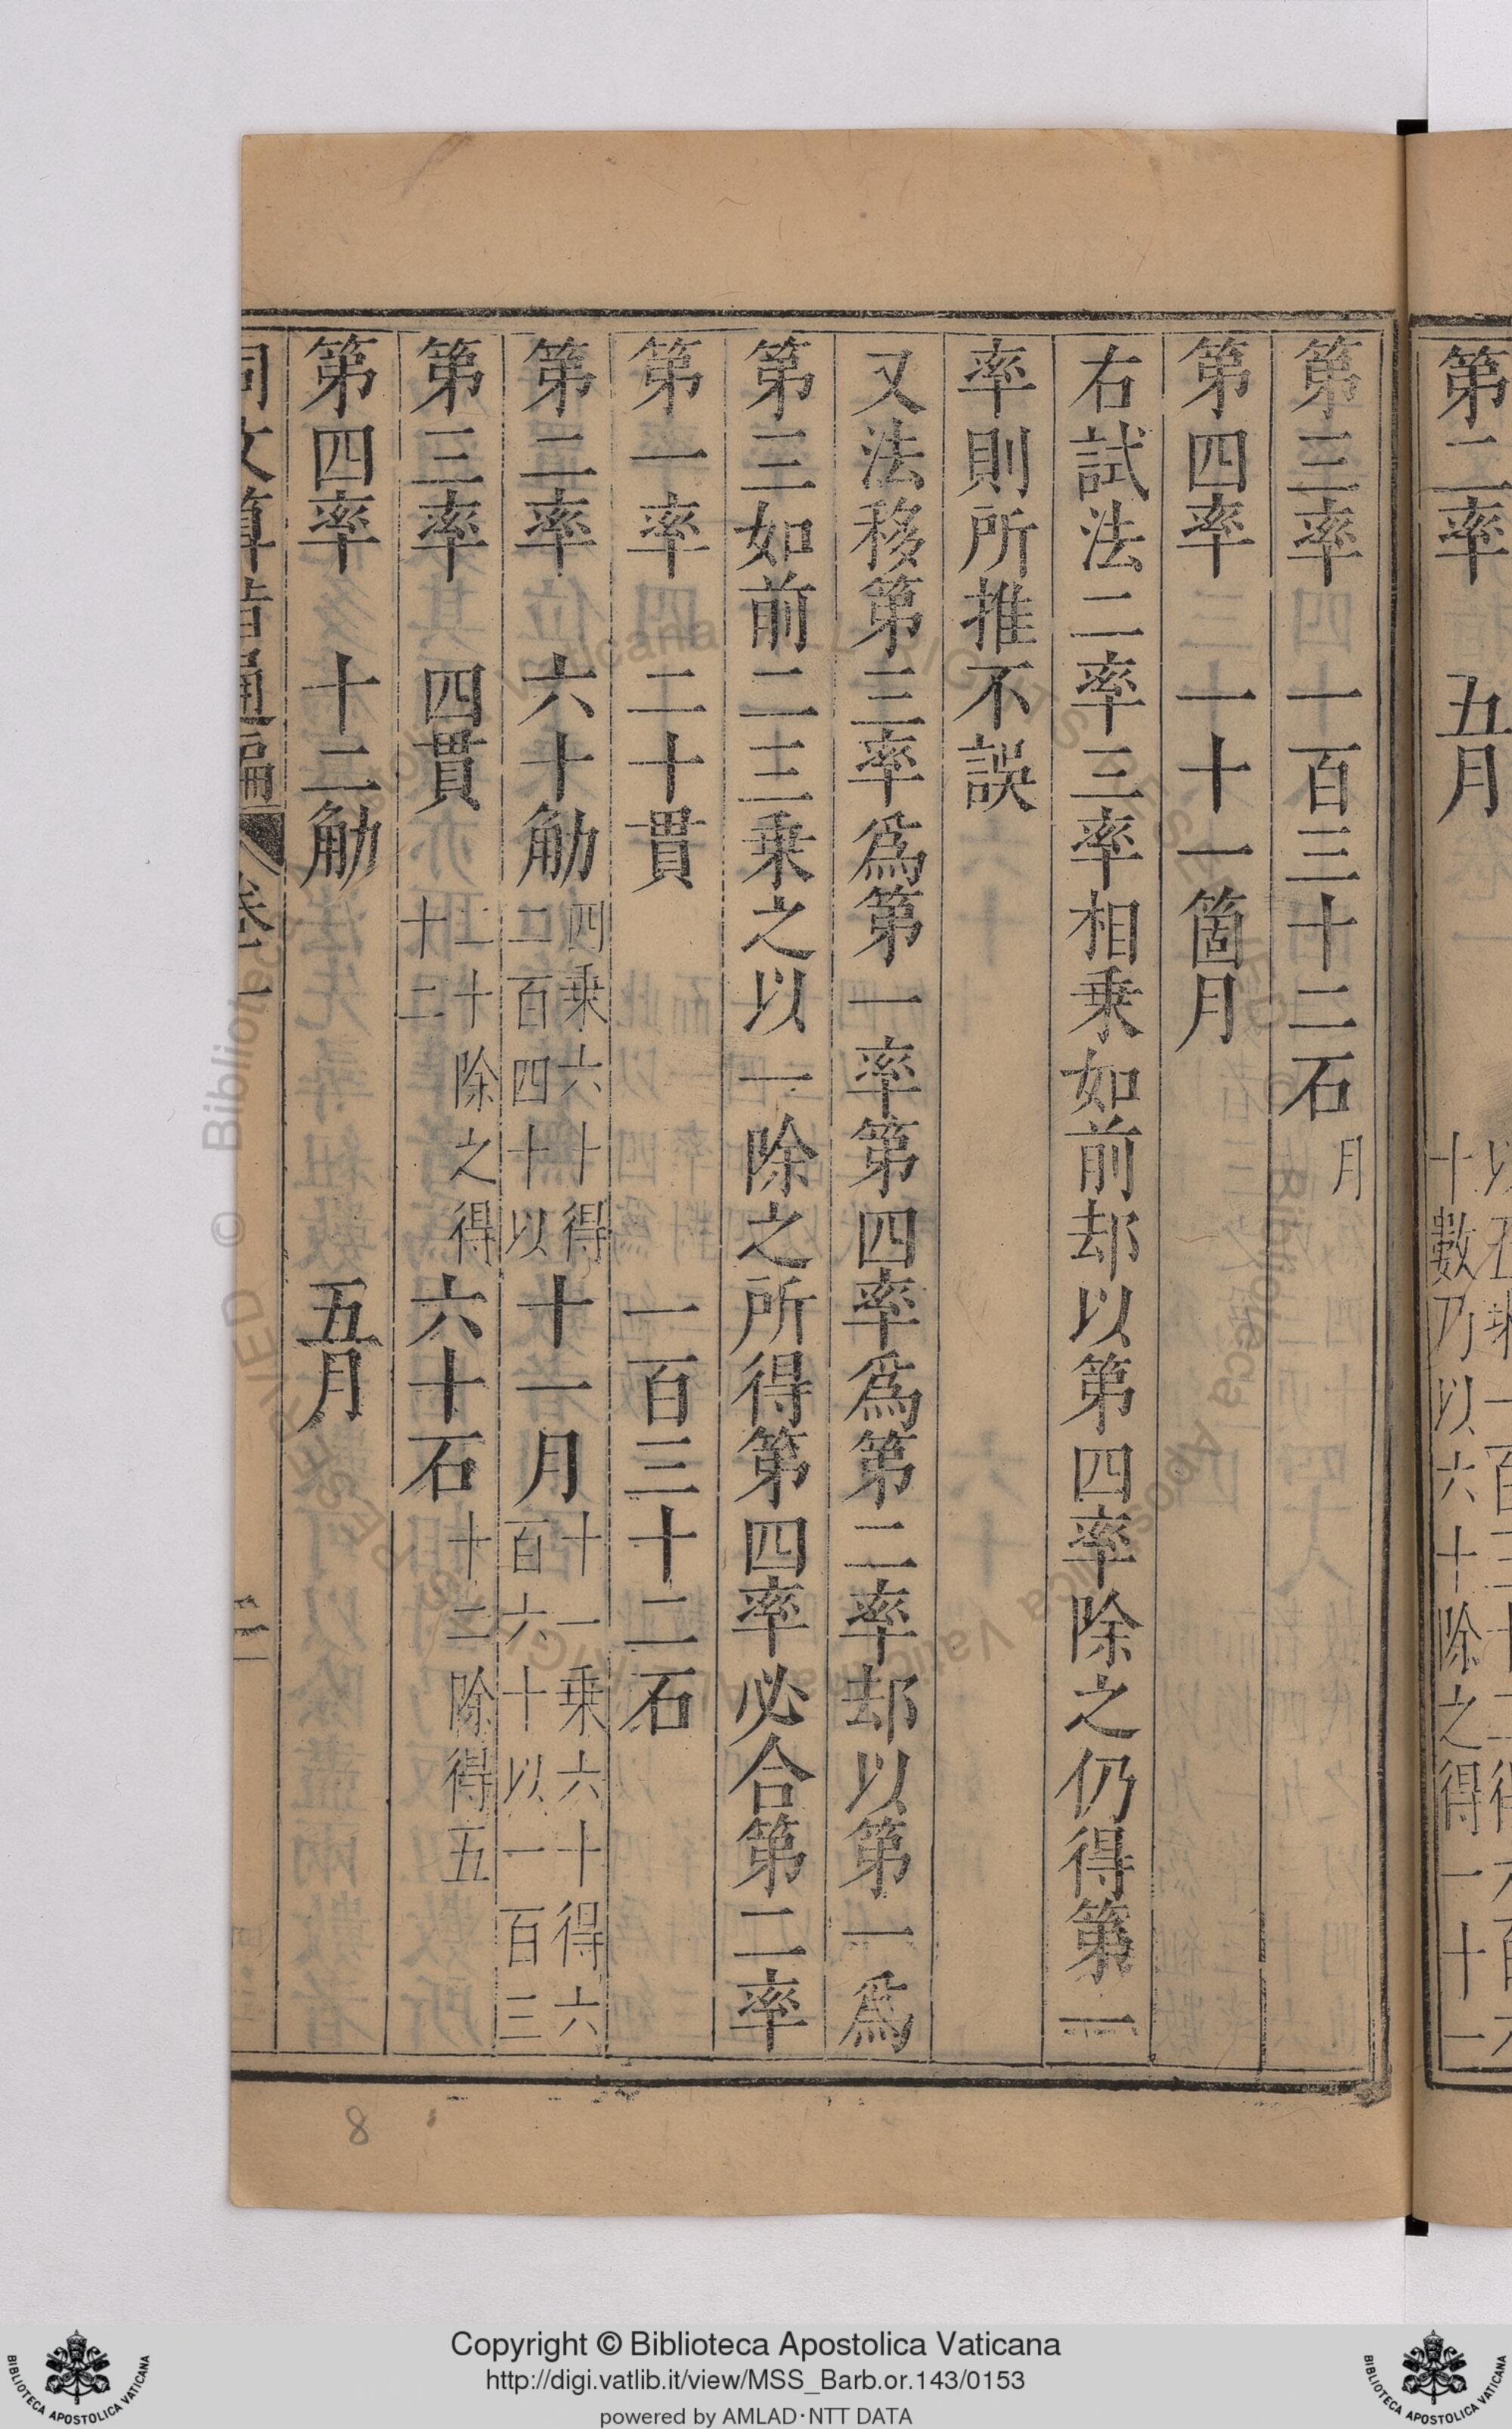 第二率　五月
十數乃以六十除之得一十一
第三率　一百三十二石月
第四率　一十一箇月
右試法二率三率相乘如前却以第四率除之仍得第一
率則所推不誤
又法移第三率爲第一率第四率爲第二率却以第一爲
第三如前二三乘之以一除之所得第四率必合第二率
第一率　二十貫　一百三十二石
第二率　六十觔四乘六十得二百四十以　十一月十一乘六十得六百六十以一百三
第三率　四貫二十除之得十二　六十石十二除得五
第四率　十二觔　五月
同文算指通編　卷一
Copyright © Biblioteca Apostolica Vaticana
http://digi.vatlib.it/view/MSS_Barb.or.143/0153
powered by AMLAD·NTT DATA
8